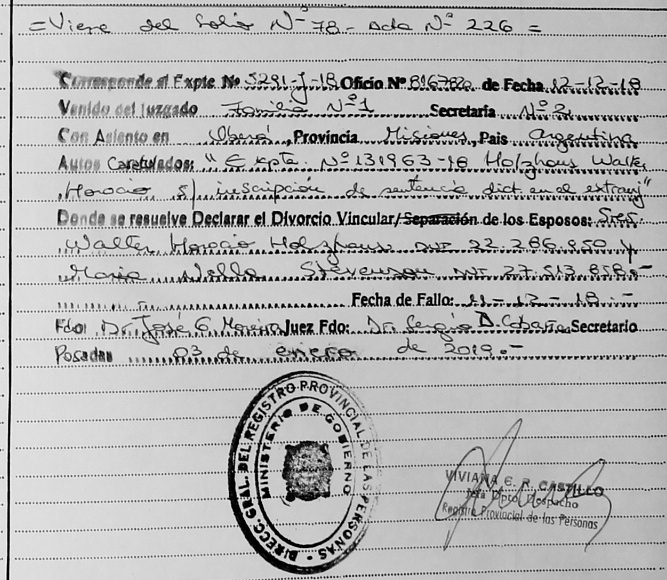 =Viene del Folio Nº 78- Acta Nº 226 =
Corresponde al Expte Nº 5291-J-18 Oficio Nº 816782 de Fecha 12-12-18
Venido del Juzgado Familia Nº 1 Secretaría Nº 2
Con Asiento en Oberá, Provincia Misiones, Pais Argentina
Autos Caratulados: "Expte. Nº 131963-18 Holzhaus Walter
Horacio s/ inscripción de sentencia dict. en el extranj"
Donde se resuelve Declarar el Divorcio Vincular/Separación de los Esposos: Sres.
Walter Horacio Holzhaus DNI 22.286.850 y
Maria Stevenson DNI 27.513.858.-
Fecha de Fallo: 11-12-18.-
Fdo: Dr. José G. Moreira Juez Fdo: Dr. Sergio D. Secretario
Posadas 03 de enero de 2019.-
DIRECC. GRAL. DEL REGISTRO PROVINCIAL DE LAS PERSONAS
MINISTERIO DE GOBIERNO
VIVIANA E. R. CASTILLO
Jefa Dpto. Despacho
Registro Provincial de las Personas